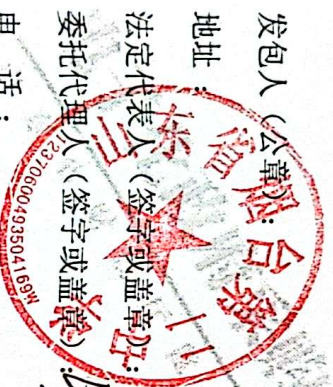 发包人（公章）：
地址：
法定代表人（签字或盖章）：
委托代理人（签字或盖章）：
电 话：
山东省烟台第
12370600493504169M